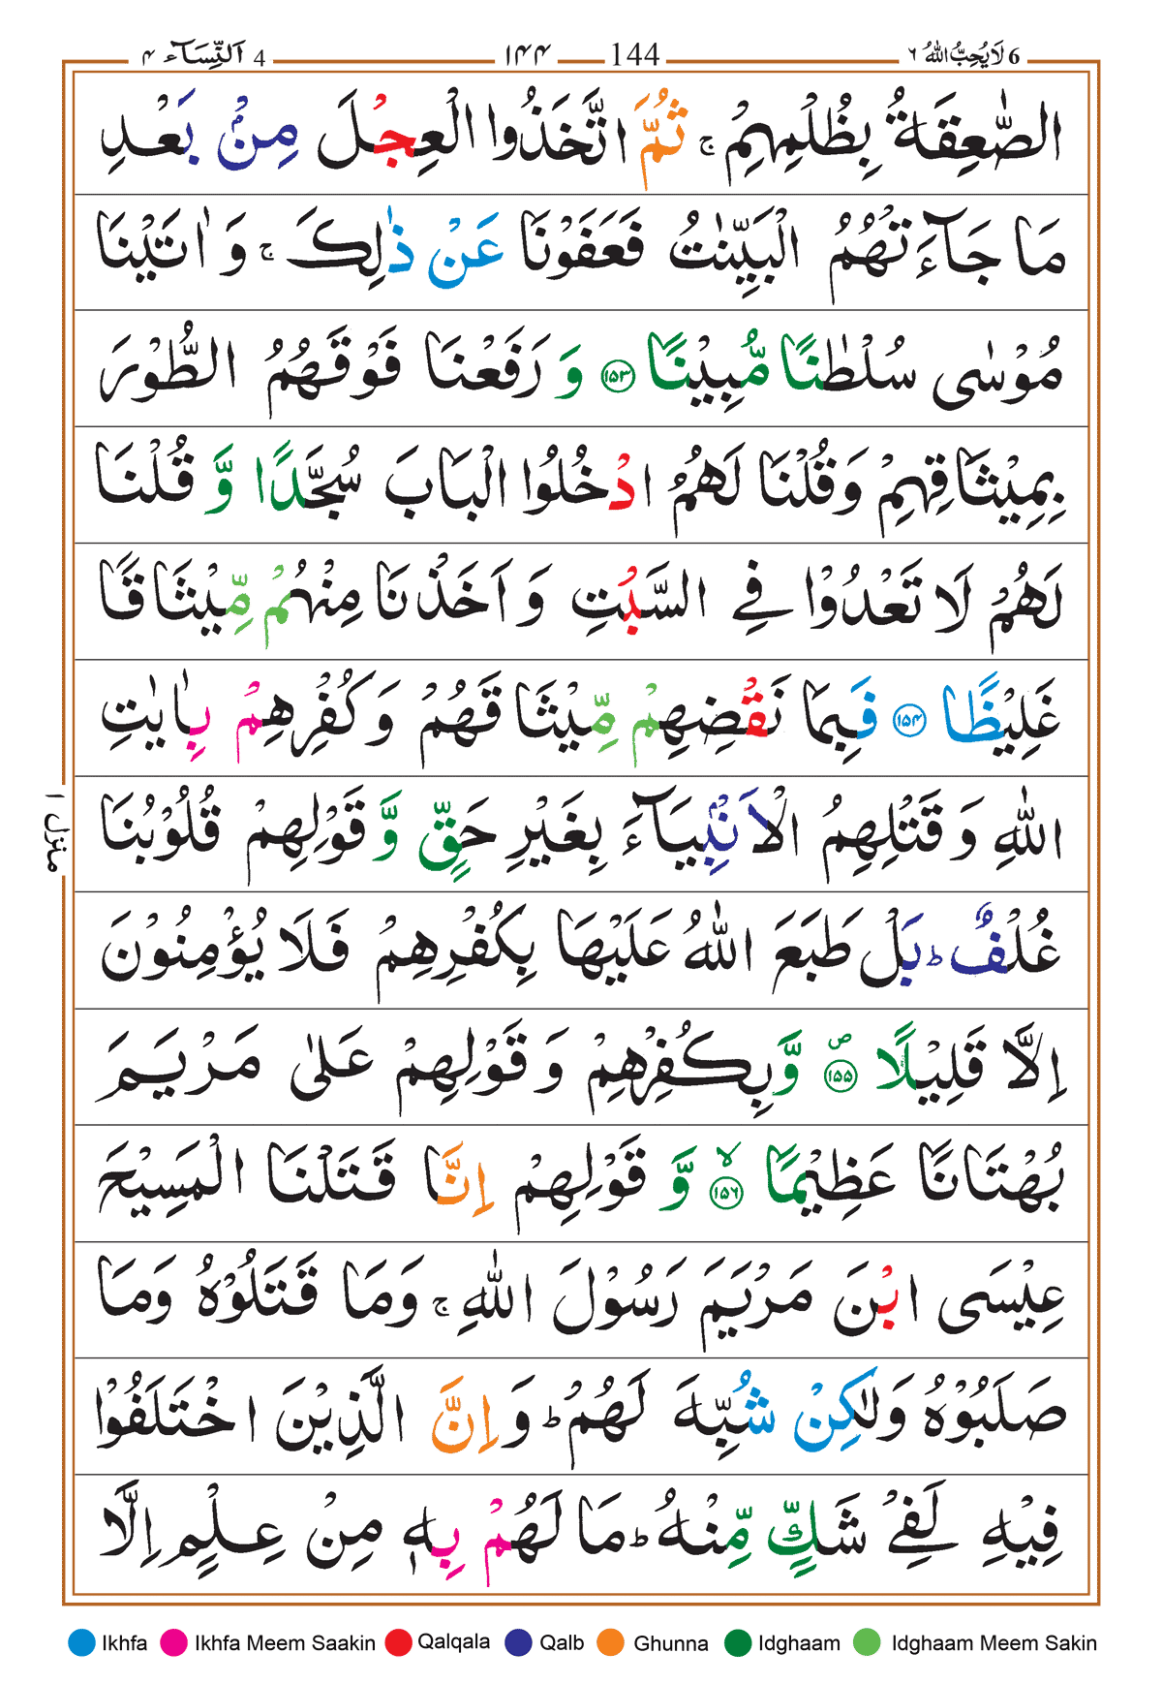 6 لَا يُحِبُّ اللّٰهُ ٦ 144 ١٤٤ 4 اَلنِّسَآء ٤
الصّٰعِقَةُ بِظُلْمِهِمْ ۚ ثُمَّ اتَّخَذُوا الْعِجْلَ مِنْۢ بَعْدِ
مَا جَآءَتْهُمُ الْبَيِّنٰتُ فَعَفَوْنَا عَنْ ذٰلِكَ ۚ وَ اٰتَيْنَا
مُوْسٰى سُلْطٰنًا مُّبِيْنًا ﴿١٥٣﴾ وَ رَفَعْنَا فَوْقَهُمُ الطُّوْرَ
بِمِيْثَاقِهِمْ وَقُلْنَا لَهُمُ ادْخُلُوا الْبَابَ سُجَّدًا وَّ قُلْنَا
لَهُمْ لَا تَعْدُوْا فِي السَّبْتِ وَ اَخَذْنَا مِنْهُمْ مِّيْثَاقًا
غَلِيْظًا ﴿١٥٤﴾ فَبِمَا نَقْضِهِمْ مِّيْثَاقَهُمْ وَكُفْرِهِمْ بِاٰيٰتِ
اللّٰهِ وَ قَتْلِهِمُ الْاَنْۢبِيَآءَ بِغَيْرِ حَقٍّ وَّ قَوْلِهِمْ قُلُوْبُنَا
غُلْفٌۢ ؕ بَلْ طَبَعَ اللّٰهُ عَلَيْهَا بِكُفْرِهِمْ فَلَا يُؤْمِنُوْنَ
اِلَّا قَلِيْلًا ﴿١٥٥﴾ۖ وَّبِكُفْرِهِمْ وَ قَوْلِهِمْ عَلٰى مَرْيَمَ
بُهْتَانًا عَظِيْمًا ﴿١٥٦﴾ۙ وَّ قَوْلِهِمْ اِنَّا قَتَلْنَا الْمَسِيْحَ
عِيْسَى ابْنَ مَرْيَمَ رَسُوْلَ اللّٰهِ ۚ وَمَا قَتَلُوْهُ وَمَا
صَلَبُوْهُ وَلٰكِنْ شُبِّهَ لَهُمْ ؕ وَ اِنَّ الَّذِيْنَ اخْتَلَفُوْا
فِيْهِ لَفِيْ شَكٍّ مِّنْهُ ؕ مَا لَهُمْ بِهٖ مِنْ عِلْمٍ اِلَّا
منزل ١
Ikhfa Ikhfa Meem Saakin Qalqala Qalb Ghunna Idghaam Idghaam Meem Sakin